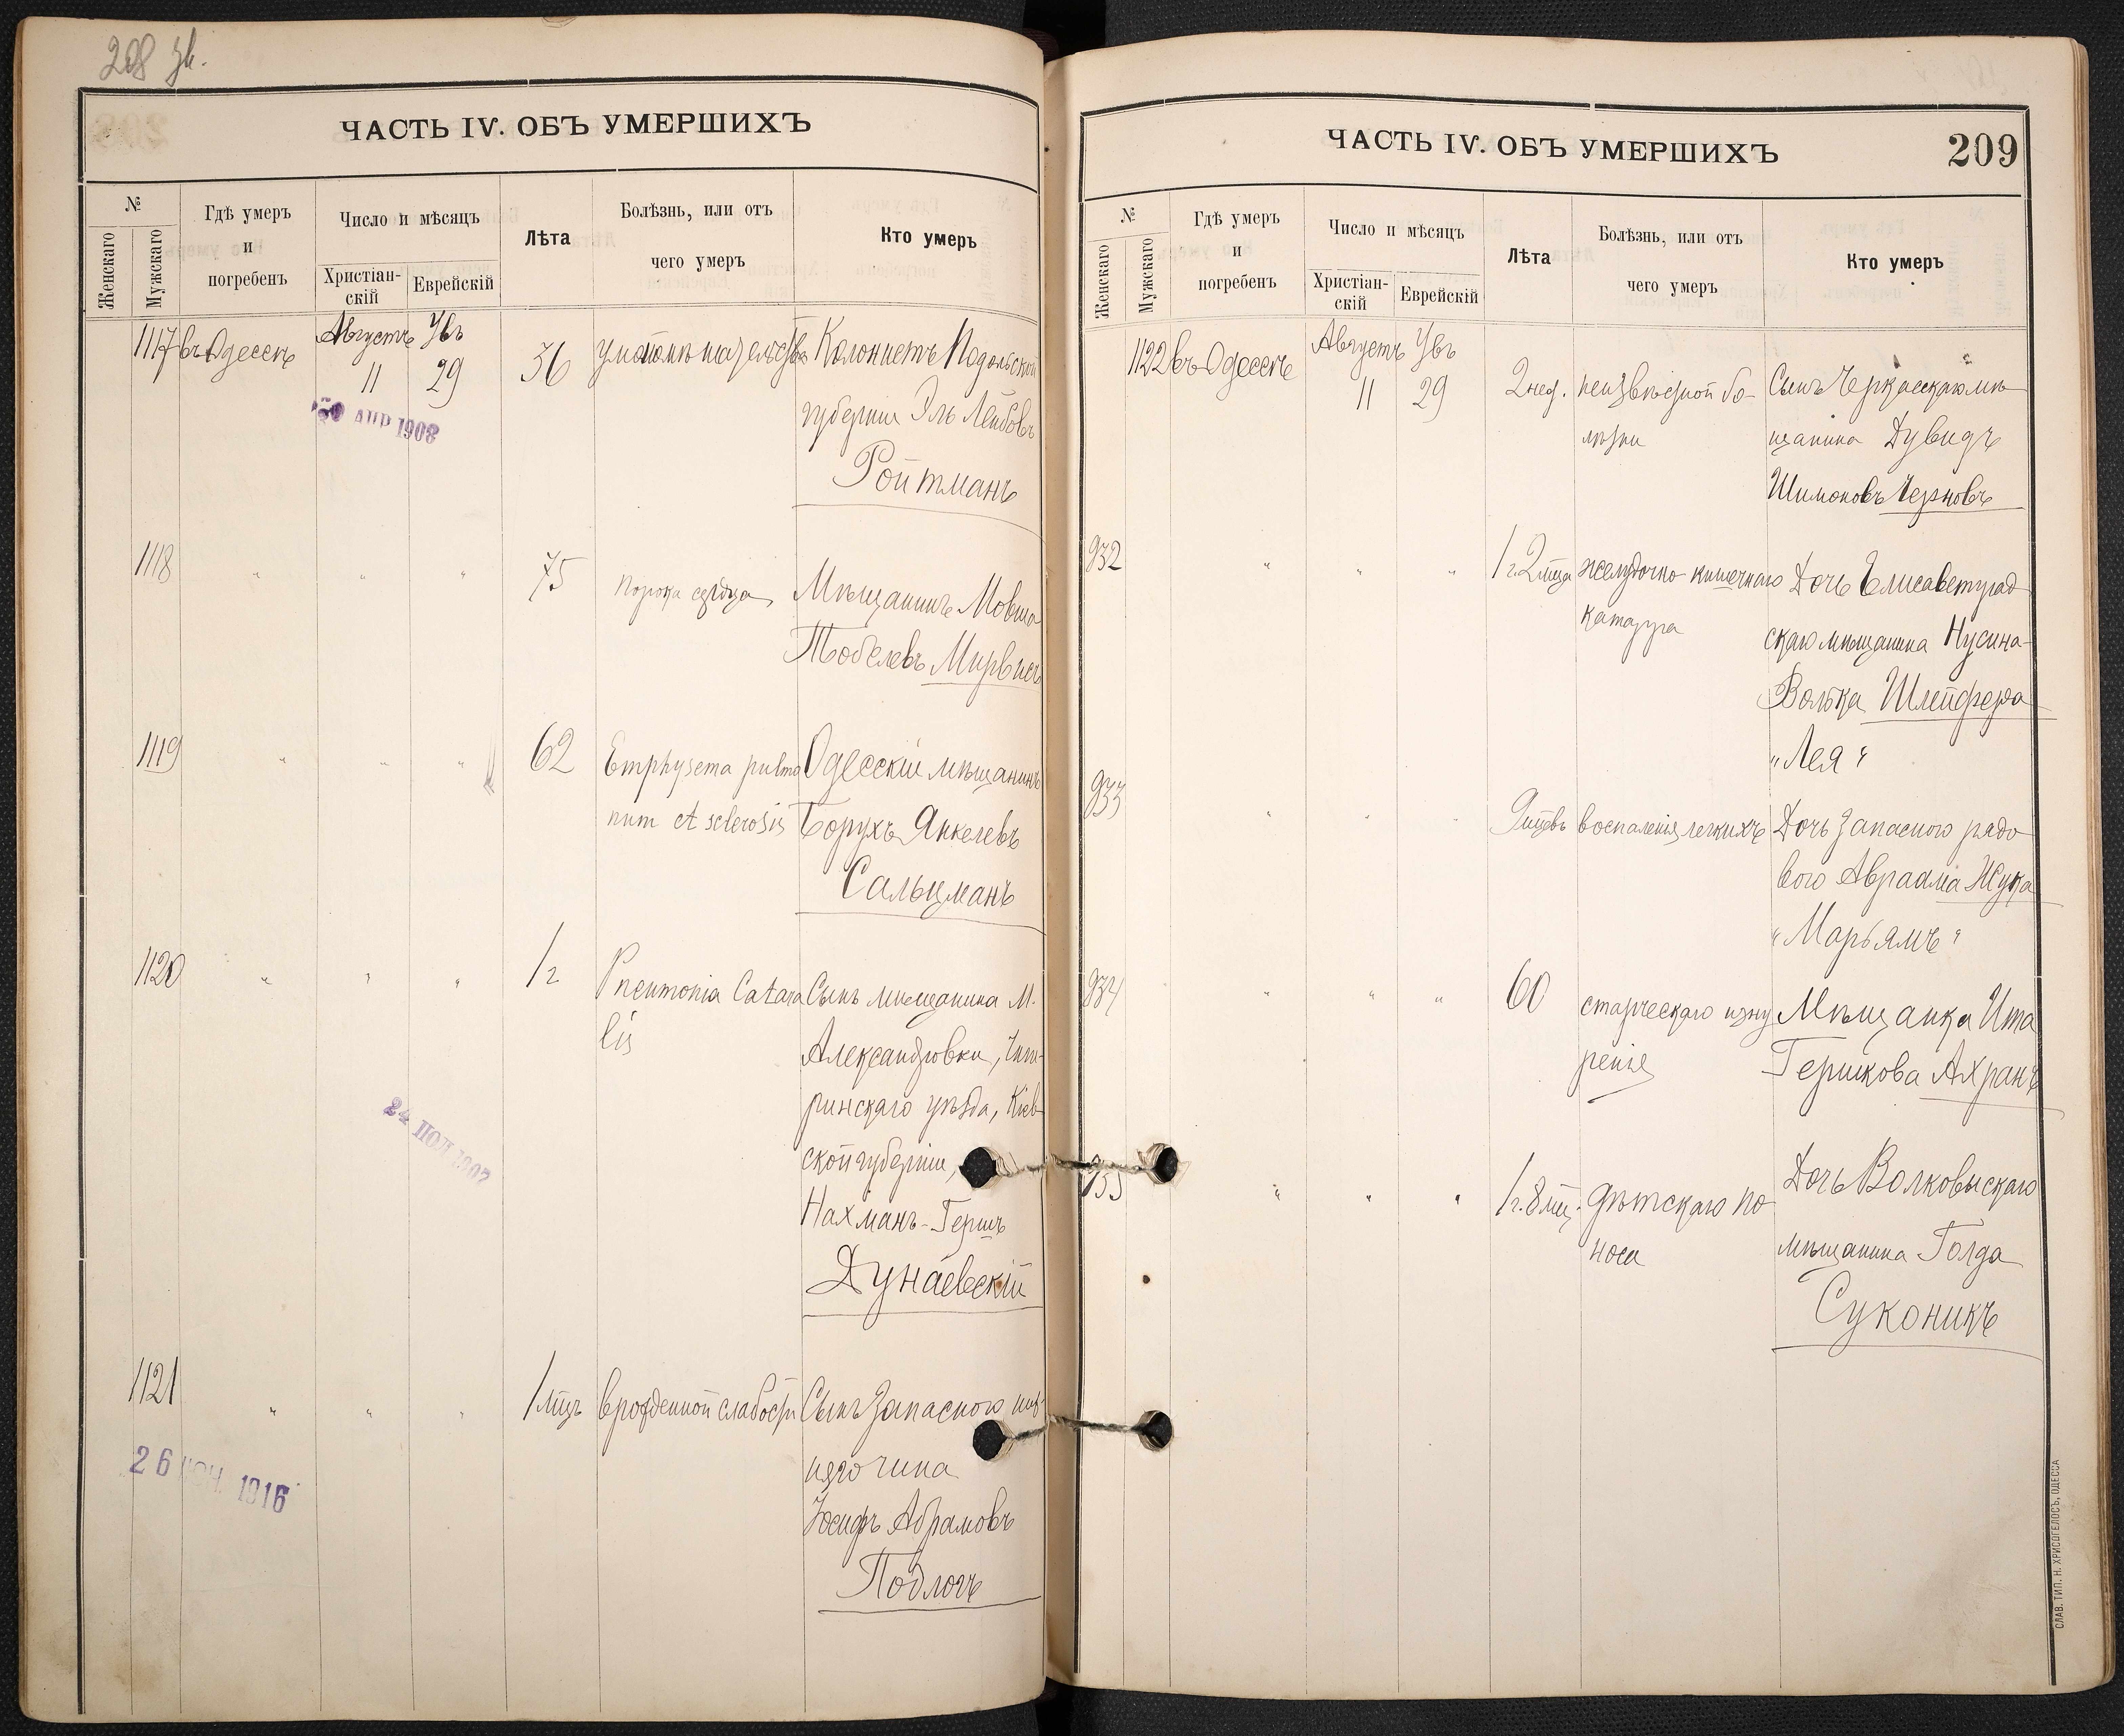 208 зв.
ЧАСТЬ IV. ОБЪ УМЕРШИХЪ
№
Женскаго
Мужскаго
Гдѣ умеръ
и
погребенъ
Число и мѣсяцъ
Христіан-
скій
Еврейскій
Лѣта
Болѣзнь, или отъ
чего умеръ
Кто умеръ
1117 въ Одессѣ Августъ 11 29 36 Колонистъ Подольской
губерніи Эль Лейбовъ
Ройтманъ
АПР 1908
1118 " " " 75 порока сердца Мѣщанинъ Мовша
Тобелевъ Мирвисъ
1119 " " " 62 Emphysema pulmo Одесскій мѣщанинъ
num et sclerosis Борухъ Янкелевъ
Сальцманъ
1120 " " " 1 г Pneumonia Catara Сынъ мѣщанина М.
lis Александровки, Чиги-
ринскаго уѣзда, Кіев-
ской губерніи,
Нахманъ-Гершъ
Дунаевскій
24 ІЮЛ 1907
1121 " " " 1 мцъ врожденной слабости Сынъ запасного ниж-
няго чина
Іосифъ Абрамовъ
Подлогъ
26 ІЮН. 1916
ЧАСТЬ IV. ОБЪ УМЕРШИХЪ
209
№
Женскаго
Мужскаго
Гдѣ умеръ
и
погребенъ
Число и мѣсяцъ
Христіан-
скій
Еврейскій
Лѣта
Болѣзнь, или отъ
чего умеръ
Кто умеръ
1122 въ Одессѣ Августъ 11 29 2 нед. неизвѣстной бо- Сынъ Черкасскаго мѣ-
лѣзни щанина Дувидъ
Шимоновъ Черновъ
932 " " " 1 г. 2 мца желудочно кишечнаго Дочь Елисаветград
катарра скаго мѣщанина Нусина-
Волька Шлейфера
"Лея"
933 " " " 9 мцевъ воспаленія легкихъ Дочь запасного рядо
вого Авраама Жука
"Марьямъ"
934 " " " 60 старческаго изну Мѣщанка Ита
ренія Гершкова Ахранъ
935 " " " 1 г. 8 мц. дѣтскаго по Дочь Волковыскаго
носа мѣщанина Голда
Суконикъ
СЛАВ. ТИП. Н. ХРИСОГЕЛОСЪ, ОДЕССА